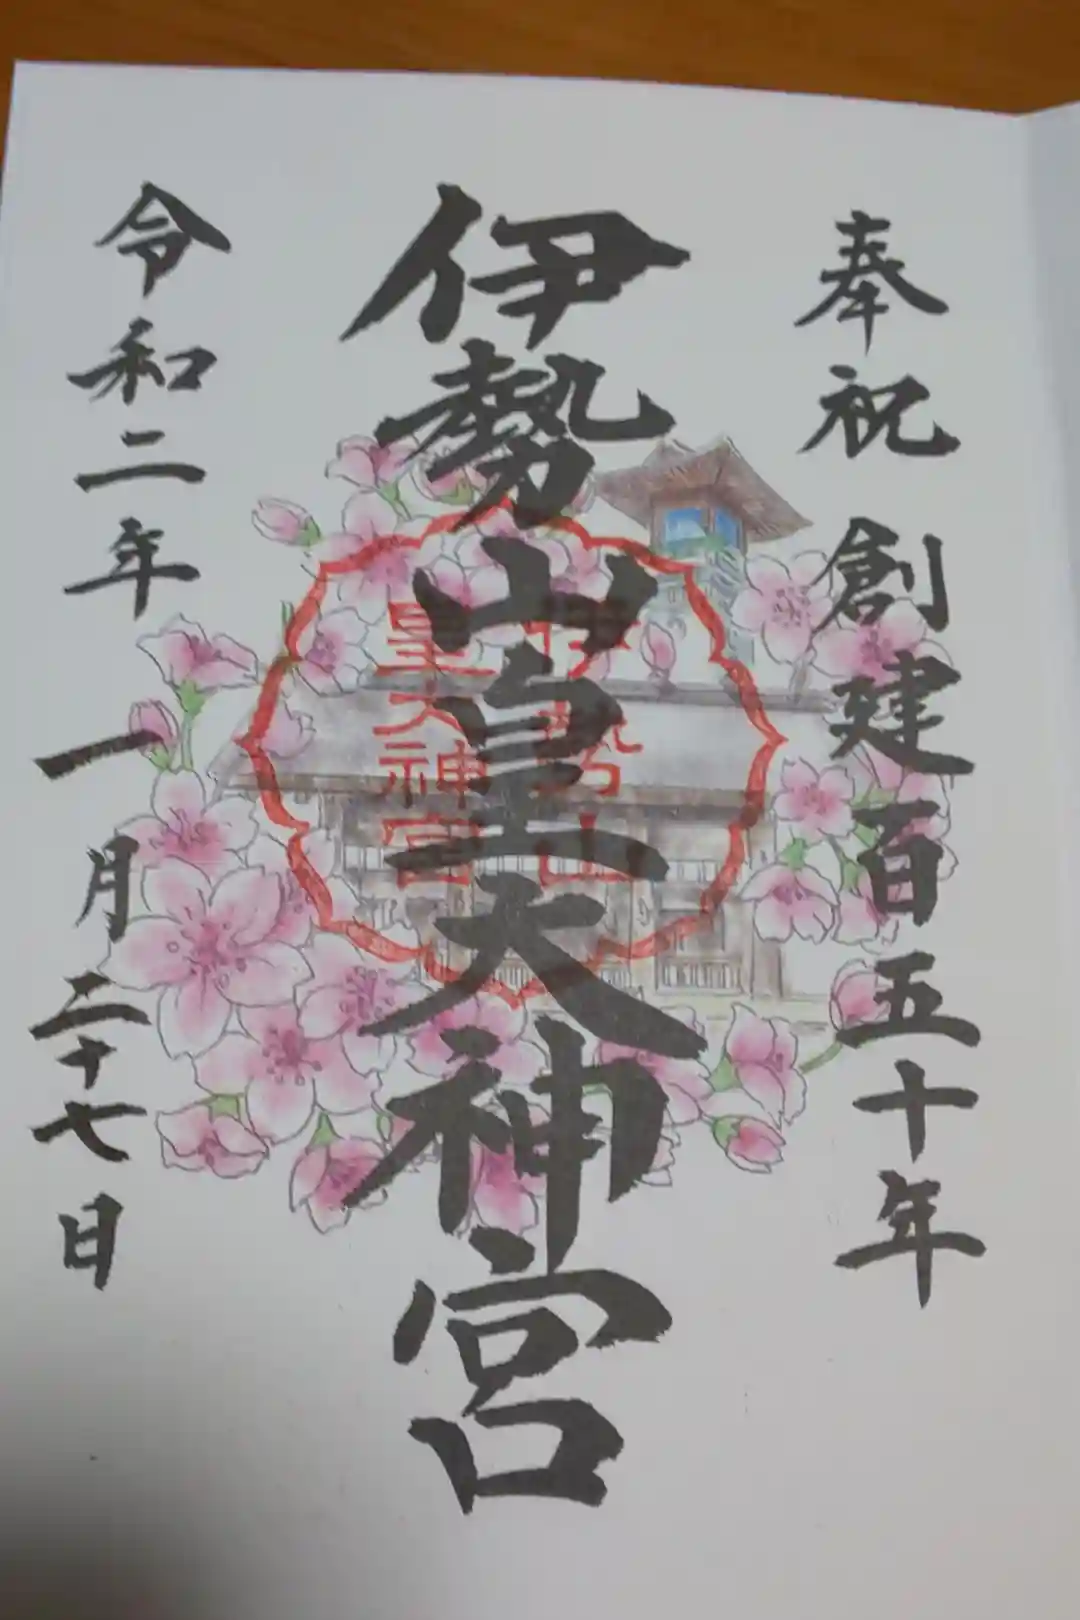 奉祝創建百五十年
伊勢山皇大神宮
伊勢山
皇大神宮
令和二年一月二十七日